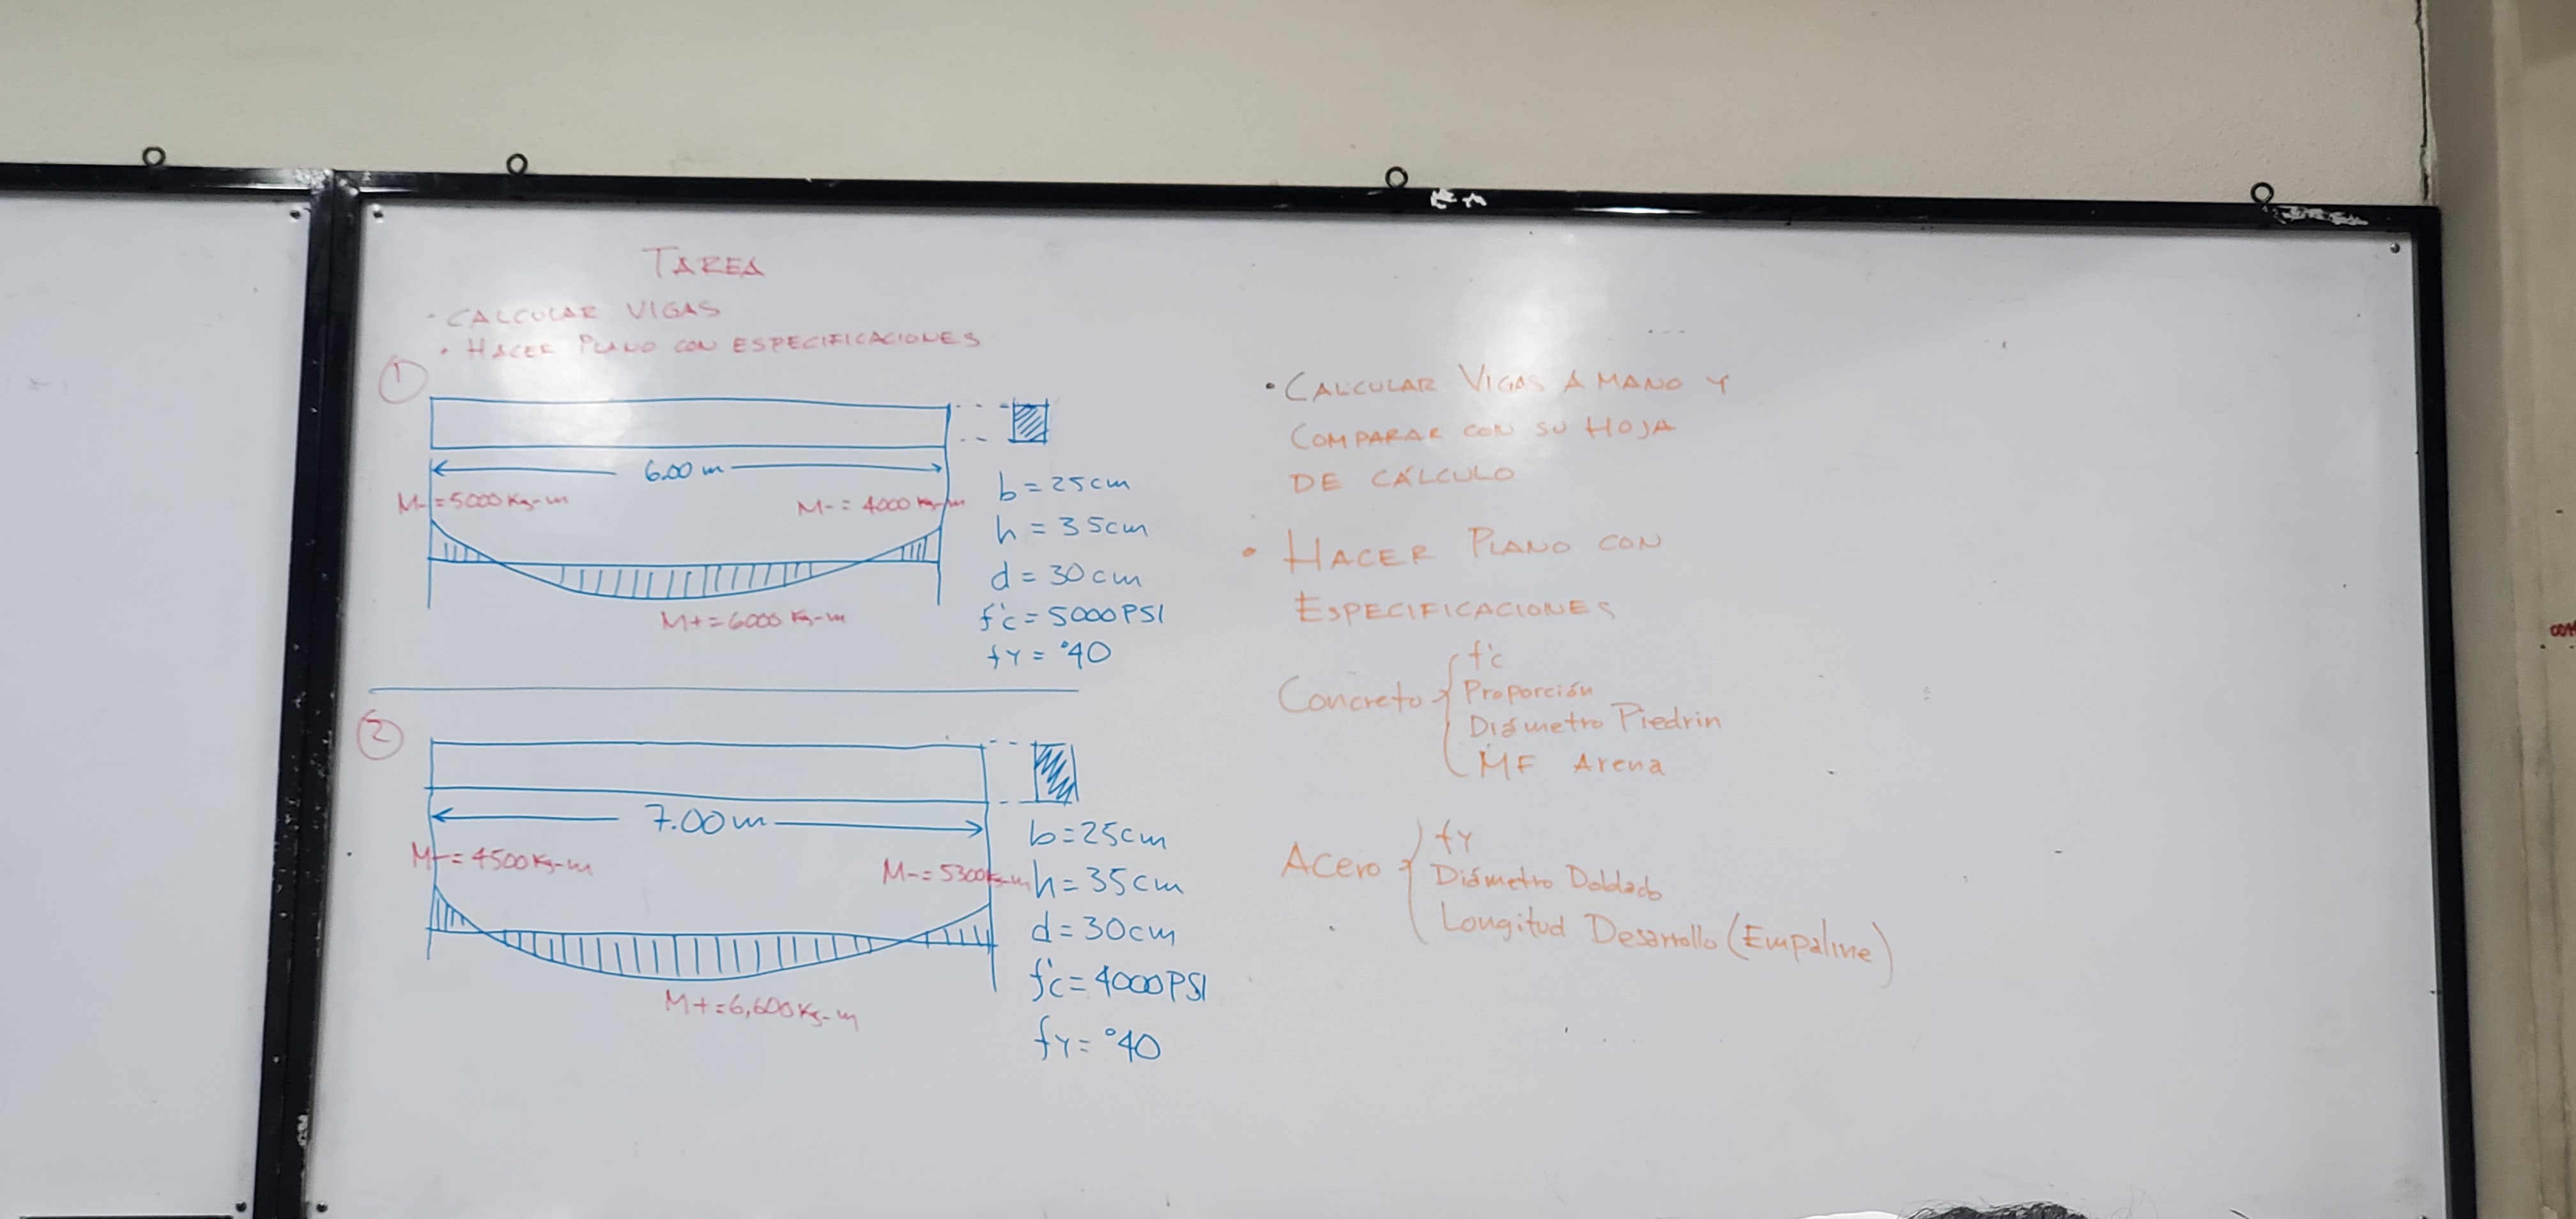 TAREA
· CALCULAR VIGAS
· HACER PLANO CON ESPECIFICACIONES
1
6.00 m
M-=5000 Kg-m
M-= 4000 Kg-m
M+=6000 Kg-m
b=25cm
h=35cm
d=30cm
f'c=5000PSI
fY=°40
2
7.00m
M-=4500Kg-m
M-=5300Kg-m
M+=6,600Kg-m
b=25cm
h=35cm
d=30cm
f'c=4000PSI
fY=°40
· CALCULAR VIGAS A MANO Y
COMPARAR CON SU HOJA
DE CÁLCULO
· HACER PLANO CON
ESPECIFICACIONES
Concreto
f'c
Proporción
Diámetro Piedrin
MF Arena
Acero
fY
Diámetro Doblado
Longitud Desarrollo (Empalme)